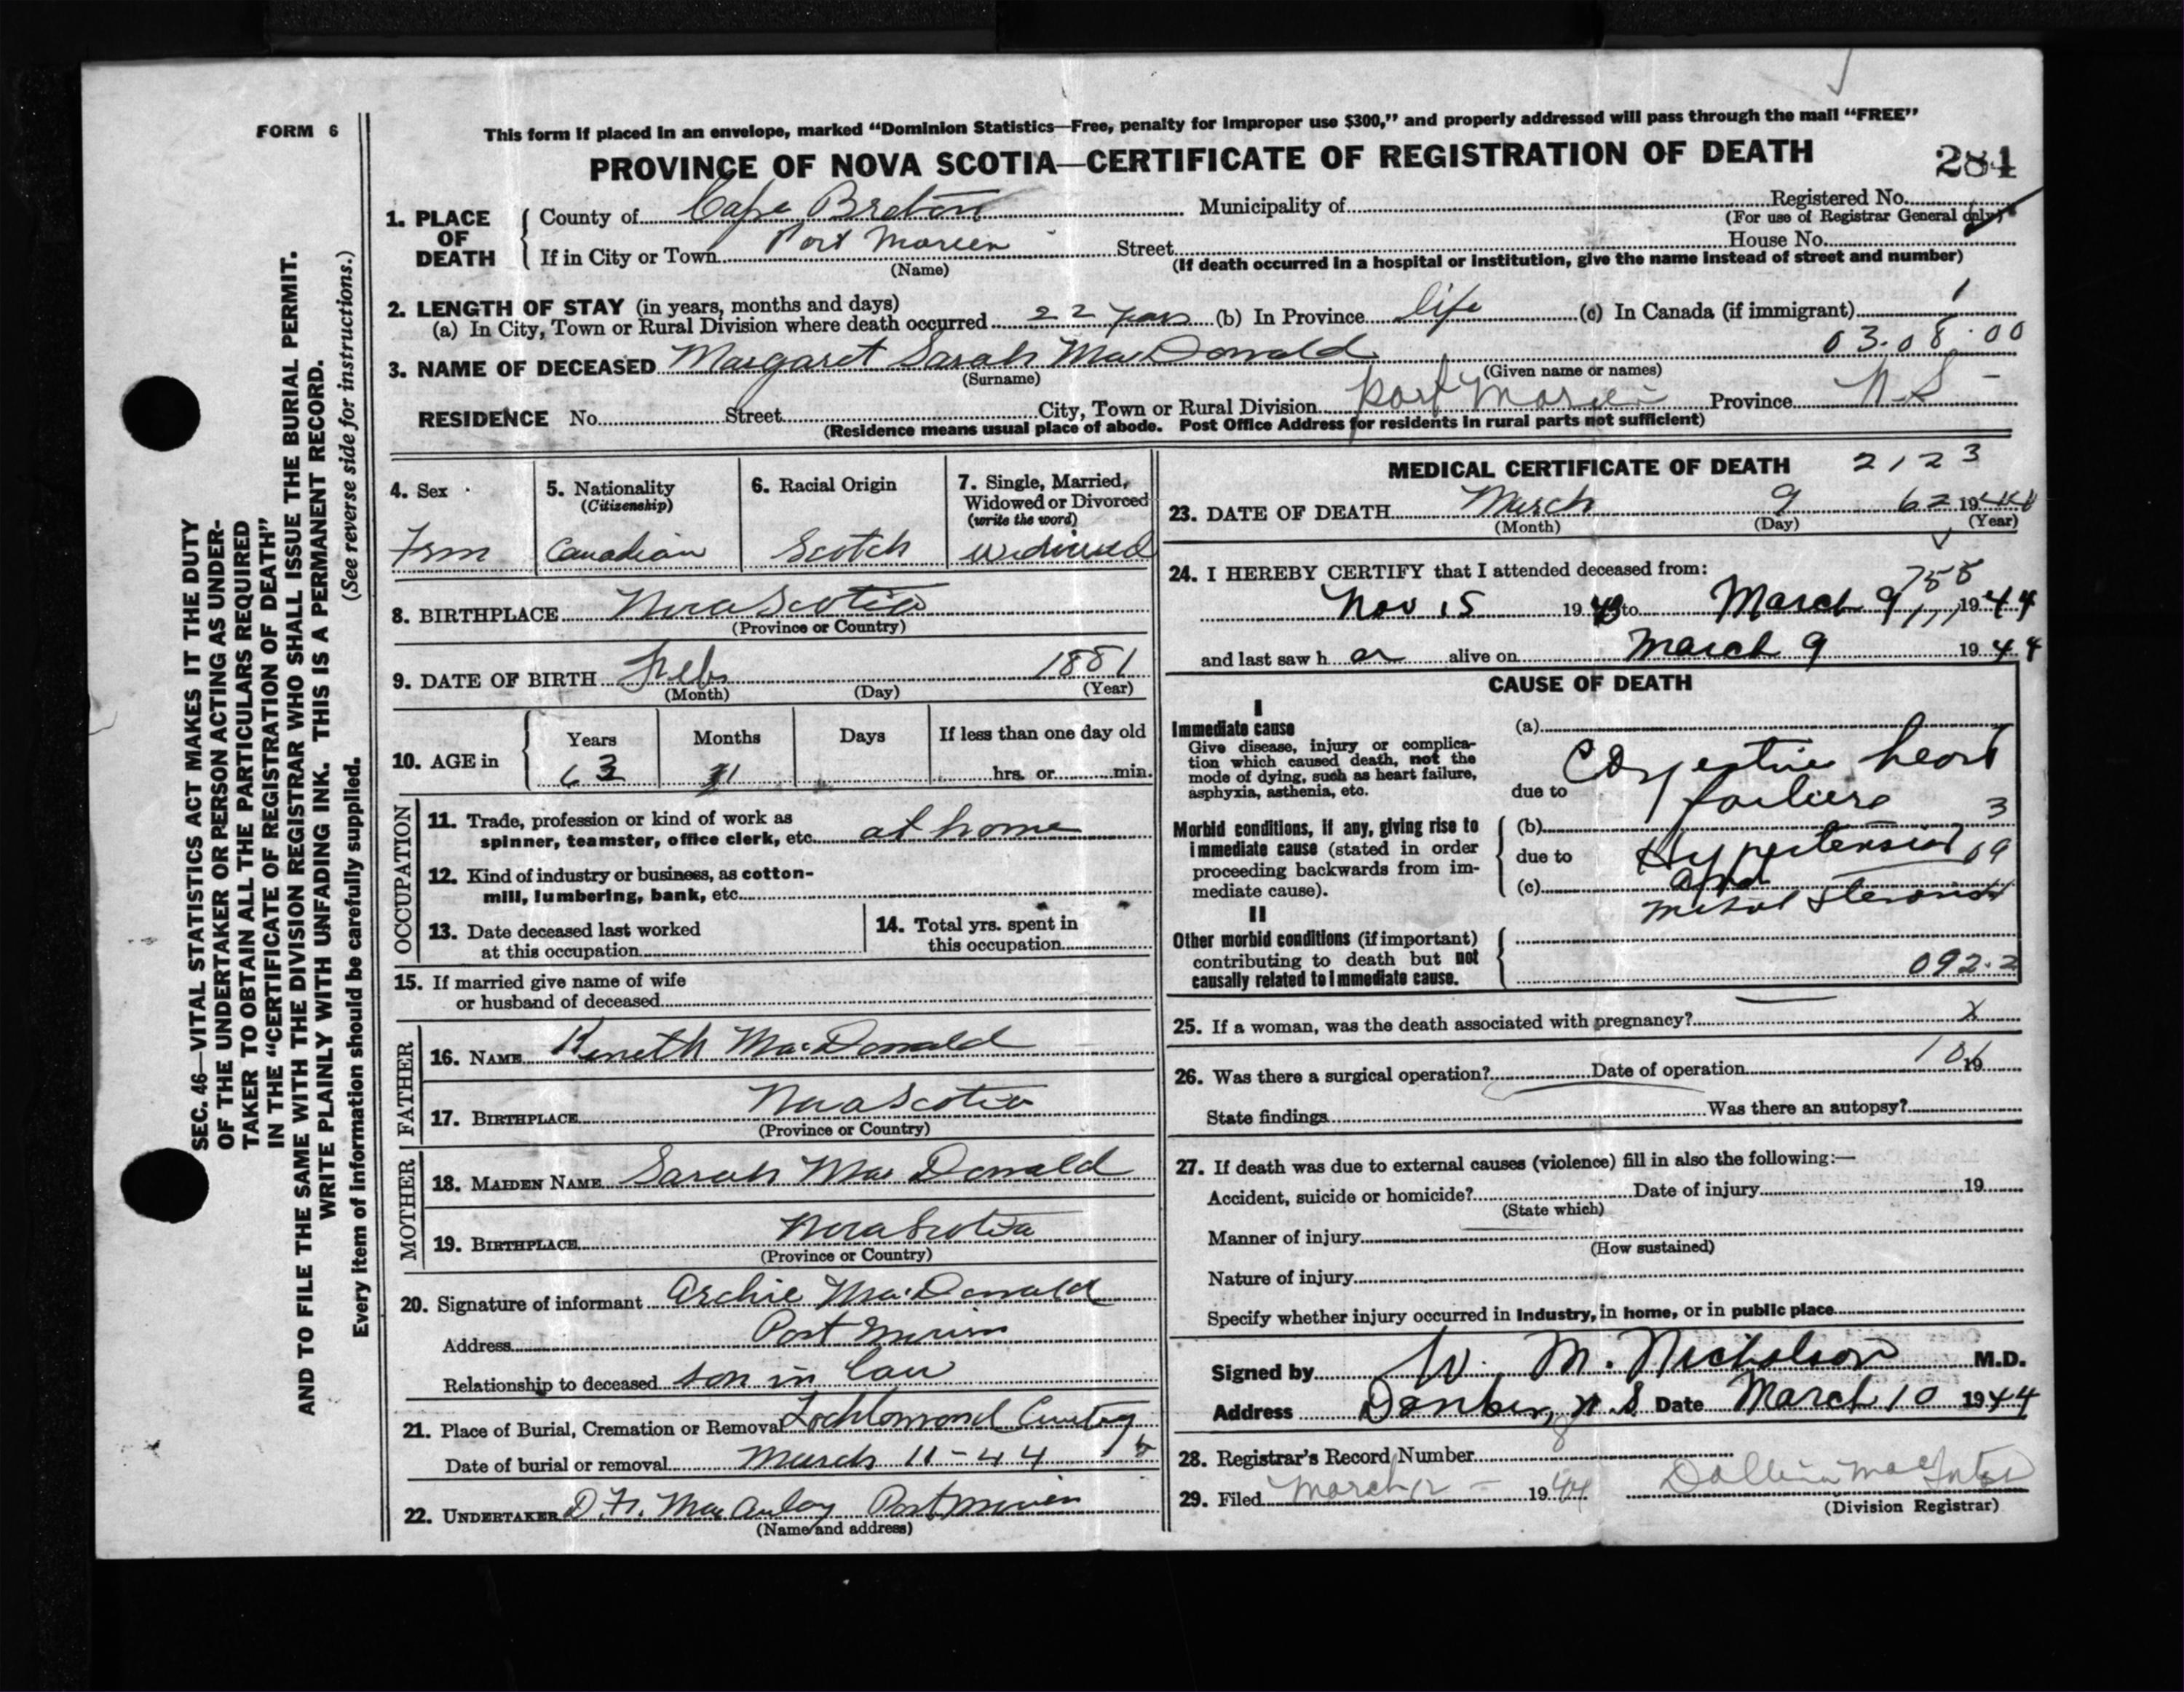 FORM 6
This form if placed in an envelope, marked “Dominion Statistics—Free, penalty for improper use $300,” and properly addressed will pass through the mail “FREE”
PROVINCE OF NOVA SCOTIA—CERTIFICATE OF REGISTRATION OF DEATH
284
1. PLACE OF DEATH
County of Cape Breton Municipality of Registered No.
(For use of Registrar General only)
If in City or Town Port Morien Street House No.
(Name) (If death occurred in a hospital or institution, give the name instead of street and number)
2. LENGTH OF STAY (in years, months and days)
(a) In City, Town or Rural Division where death occurred 22 years (b) In Province life (c) In Canada (if immigrant) 1
03.08.00
3. NAME OF DECEASED Margaret Sarah MacDonald
(Surname) (Given name or names)
RESIDENCE No. Street City, Town or Rural Division Port Morien Province N.S.
(Residence means usual place of abode. Post Office Address for residents in rural parts not sufficient)
4. Sex
Fem
5. Nationality
(Citizenship)
Canadian
6. Racial Origin
Scotch
7. Single, Married, Widowed or Divorced
(write the word)
Widowed
8. BIRTHPLACE Nova Scotia
(Province or Country)
9. DATE OF BIRTH Feb 1881
(Month) (Day) (Year)
10. AGE in Years Months Days If less than one day old
63 1 hrs. or min.
OCCUPATION
11. Trade, profession or kind of work as
spinner, teamster, office clerk, etc. at home
12. Kind of industry or business, as cotton-
mill, lumbering, bank, etc.
13. Date deceased last worked
at this occupation
14. Total yrs. spent in
this occupation
15. If married give name of wife
or husband of deceased
FATHER
16. NAME Kineth MacDonald
17. BIRTHPLACE Nova Scotia
(Province or Country)
MOTHER
18. MAIDEN NAME Sarah MacDonald
19. BIRTHPLACE Nova Scotia
(Province or Country)
20. Signature of informant Archie MacDonald
Address Port Morien
Relationship to deceased son in law
21. Place of Burial, Cremation or Removal Lochlomond Cemetery
Date of burial or removal March 11-44
22. UNDERTAKER D.F. MacAulay Port Morien
(Name and address)
MEDICAL CERTIFICATE OF DEATH 2123
23. DATE OF DEATH March 9 62 1944
(Month) (Day) (Year)
24. I HEREBY CERTIFY that I attended deceased from:
755
Nov 15 1943 to March 9 1944
and last saw h er alive on March 9 1944
CAUSE OF DEATH
I
Immediate cause
Give disease, injury or complica-
tion which caused death, not the
mode of dying, such as heart failure,
asphyxia, asthenia, etc.
(a)
Congestive heart
due to failure
Morbid conditions, if any, giving rise to
immediate cause (stated in order
proceeding backwards from im-
mediate cause).
(b) 3
due to Hypertension 09
(c) and
Mitral Stenosis
II
Other morbid conditions (if important)
contributing to death but not
causally related to immediate cause.
092.2
25. If a woman, was the death associated with pregnancy? X
26. Was there a surgical operation? Date of operation 19
State findings Was there an autopsy?
27. If death was due to external causes (violence) fill in also the following:—
Accident, suicide or homicide? Date of injury 19
(State which)
Manner of injury
(How sustained)
Nature of injury
Specify whether injury occurred in industry, in home, or in public place
Signed by W. M. Nicholson M.D.
Address N.S Date March 10 1944
28. Registrar's Record Number 8
29. Filed March 12 1944
(Division Registrar)
SEC. 46—VITAL STATISTICS ACT MAKES IT THE DUTY
OF THE UNDERTAKER OR PERSON ACTING AS UNDER-
TAKER TO OBTAIN ALL THE PARTICULARS REQUIRED
IN THE “CERTIFICATE OF REGISTRATION OF DEATH”
AND TO FILE THE SAME WITH THE DIVISION REGISTRAR WHO SHALL ISSUE THE BURIAL PERMIT.
WRITE PLAINLY WITH UNFADING INK. THIS IS A PERMANENT RECORD.
(See reverse side for instructions.)
Every item of information should be carefully supplied.